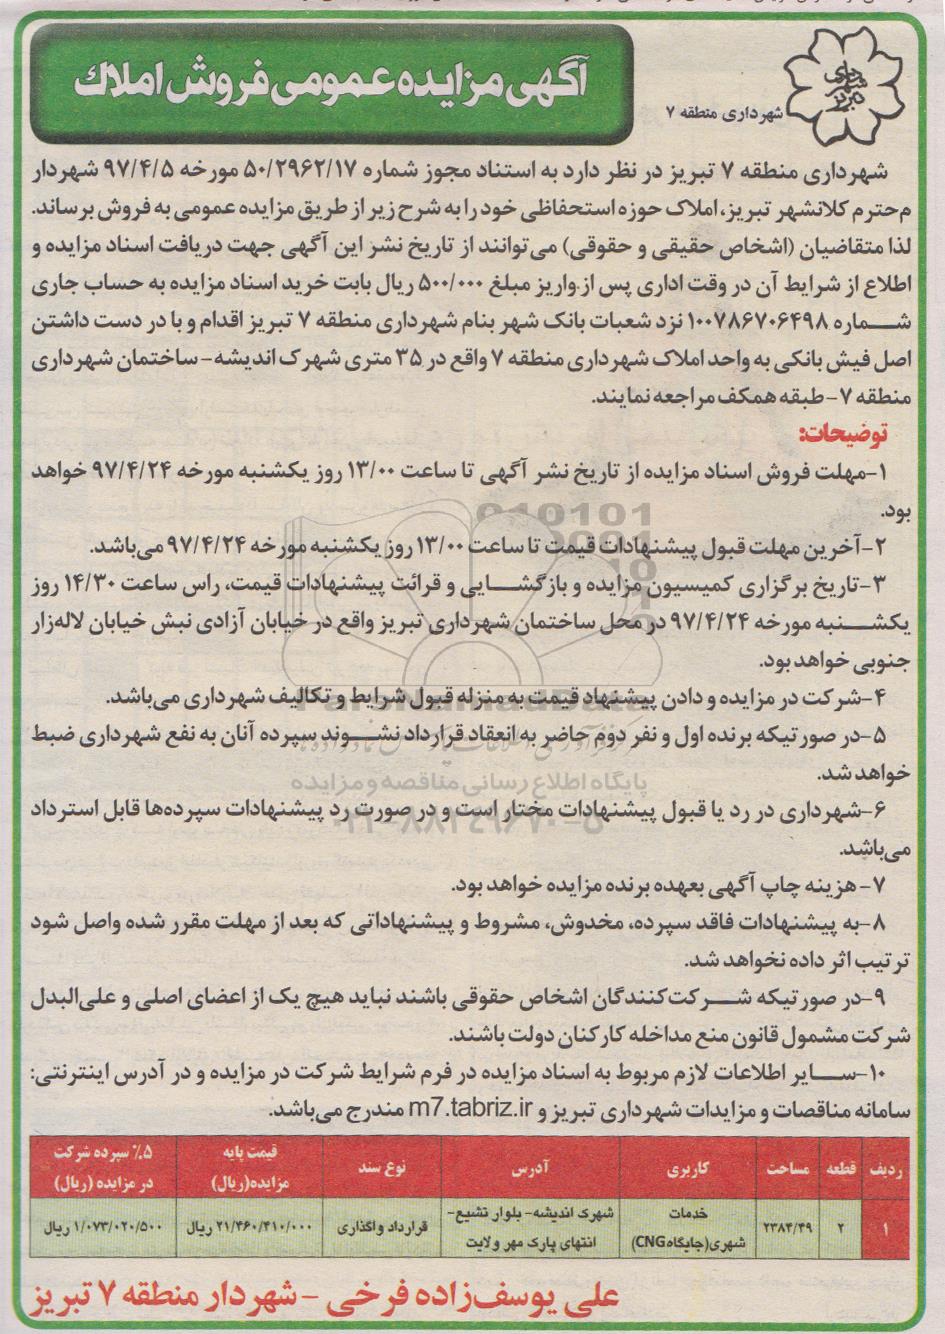 شهرداری تبریز
شهرداری منطقه ۷
آگهی مزایده عمومی فروش املاک
شهرداری منطقه ۷ تبریز در نظر دارد به استناد مجوز شماره ۵۰/۲۹۶۲/۱۷ مورخه ۹۷/۴/۵ شهردار
محترم کلانشهر تبریز، املاک حوزه استحفاظی خود را به شرح زیر از طریق مزایده عمومی به فروش برساند.
لذا متقاضیان (اشخاص حقیقی و حقوقی) می‌توانند از تاریخ نشر این آگهی جهت دریافت اسناد مزایده و
اطلاع از شرایط آن در وقت اداری پس از واریز مبلغ ۵۰۰/۰۰۰ ریال بابت خرید اسناد مزایده به حساب جاری
شماره ۱۰۰۷۸۶۷۰۶۴۹۸ نزد شعبات بانک شهر بنام شهرداری منطقه ۷ تبریز اقدام و با در دست داشتن
اصل فیش بانکی به واحد املاک شهرداری منطقه ۷ واقع در ۳۵ متری شهرک اندیشه- ساختمان شهرداری
منطقه ۷- طبقه همکف مراجعه نمایند.
توضیحات:
۱-مهلت فروش اسناد مزایده از تاریخ نشر آگهی تا ساعت ۱۳/۰۰ روز یکشنبه مورخه ۹۷/۴/۲۴ خواهد
بود.
۲-آخرین مهلت قبول پیشنهادات قیمت تا ساعت ۱۳/۰۰ روز یکشنبه مورخه ۹۷/۴/۲۴ می‌باشد.
۳-تاریخ برگزاری کمیسیون مزایده و بازگشایی و قرائت پیشنهادات قیمت، راس ساعت ۱۴/۳۰ روز
یکشنبه مورخه ۹۷/۴/۲۴ در محل ساختمان شهرداری تبریز واقع در خیابان آزادی نبش خیابان لاله‌زار
جنوبی خواهد بود.
۴-شرکت در مزایده و دادن پیشنهاد قیمت به منزله قبول شرایط و تکالیف شهرداری می‌باشد.
۵-در صورتیکه برنده اول و نفر دوم حاضر به انعقاد قرارداد نشوند سپرده آنان به نفع شهرداری ضبط
خواهد شد.
پایگاه اطلاع رسانی مناقصه و مزایده
۶-شهرداری در رد یا قبول پیشنهادات مختار است و در صورت رد پیشنهادات سپرده‌ها قابل استرداد
۰۲۱-۸۸۳۴۹۶۷۰-۵
می‌باشد.
۷- هزینه چاپ آگهی بعهده برنده مزایده خواهد بود.
۸-به پیشنهادات فاقد سپرده، مخدوش، مشروط و پیشنهاداتی که بعد از مهلت مقرر شده واصل شود
ترتیب اثر داده نخواهد شد.
۹-در صورتیکه شرکت‌کنندگان اشخاص حقوقی باشند نباید هیچ یک از اعضای اصلی و علی‌البدل
شرکت مشمول قانون منع مداخله کارکنان دولت باشند.
۱۰-سایر اطلاعات لازم مربوط به اسناد مزایده در فرم شرایط شرکت در مزایده و در آدرس اینترنتی:
سامانه مناقصات و مزایدات شهرداری تبریز و m7.tabriz.ir مندرج می‌باشد.
ردیف قطعه مساحت کاربری آدرس نوع سند قیمت پایه مزایده(ریال) ۵٪ سپرده شرکت در مزایده (ریال)
۱ ۲ ۲۳۸۴/۴۹ خدمات شهری(جایگاه CNG) شهرک اندیشه- بلوار تشیع- انتهای پارک مهر ولایت قرارداد واگذاری ۲۱/۴۶۰/۴۱۰/۰۰۰ ریال ۱/۰۷۳/۰۲۰/۵۰۰ ریال
علی یوسف‌زاده فرخی - شهردار منطقه ۷ تبریز